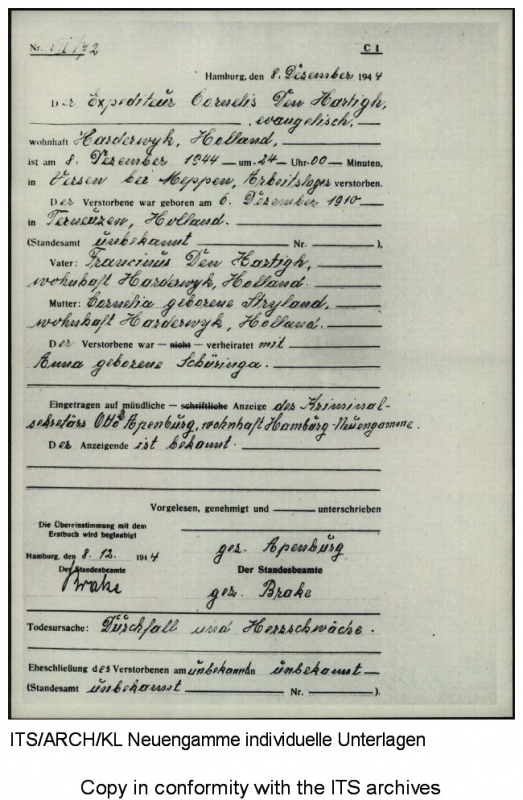 Nr. C 1
Hamburg, den 8. Dezember 1944
Der Expediteur Cornelis Den Hartigh,
, evangelisch,
wohnhaft Harderwyk, Holland,
ist am 8. Dezember 1944 — um 24 — Uhr 00 — Minuten,
in Versen bei Meppen, Arbeitslager verstorben.
Der Verstorbene war geboren am 6. Dezember 1910
in Terneuzen, Holland.
(Standesamt unbekannt Nr. ).
Vater: Francinus Den Hartigh,
wohnhaft Harderwyk, Holland.
Mutter: Cornelia geborene Stryland,
wohnhaft Harderwyk, Holland.
Der Verstorbene war — nicht — verheiratet mit
Anna geborene Schuringa.
Eingetragen auf mündliche — schriftliche Anzeige des Kriminal-
sekretärs Otto Apenburg, wohnhaft Hamburg-Neuengamme.
Der Anzeigende ist bekannt.
Vorgelesen, genehmigt und unterschrieben
Die Übereinstimmung mit dem
Erstbuch wird beglaubigt
gez. Apenburg
Hamburg, den 8. 12. 1944
Der Standesbeamte
Der Standesbeamte
Brake
gez. Brake
Todesursache: Durchfall und Herzschwäche.
Eheschließung des Verstorbenen am unbekannt in unbekannt
(Standesamt unbekannt Nr. ).
ITS/ARCH/KL Neuengamme individuelle Unterlagen
Copy in conformity with the ITS archives